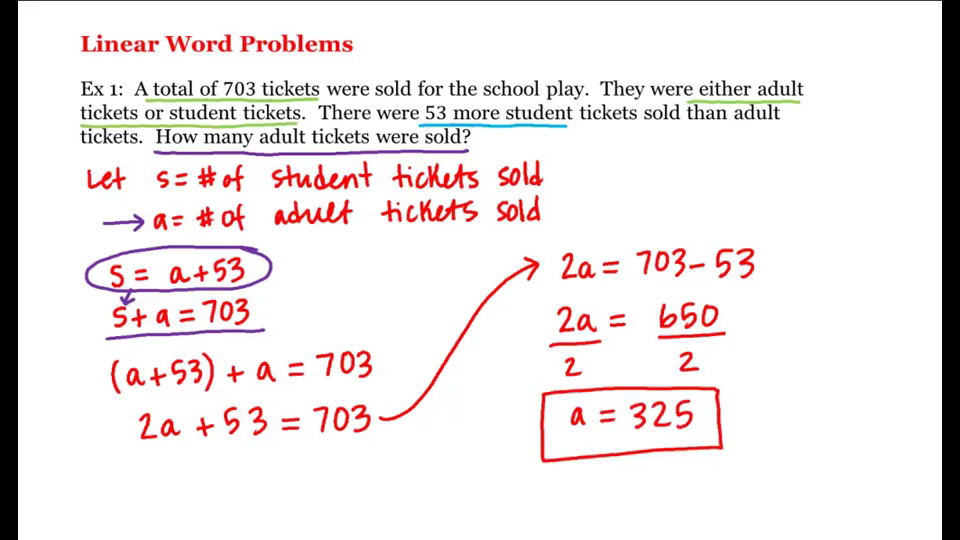 Linear Word Problems
Ex 1: A total of 703 tickets were sold for the school play. They were either adult
tickets or student tickets. There were 53 more student tickets sold than adult
tickets. How many adult tickets were sold?
Let s = # of student tickets sold
→ a = # of adult tickets sold
s = a + 53
s + a = 703
(a + 53) + a = 703
2a + 53 = 703
2a = 703 - 53
2a = 650
2 2
a = 325